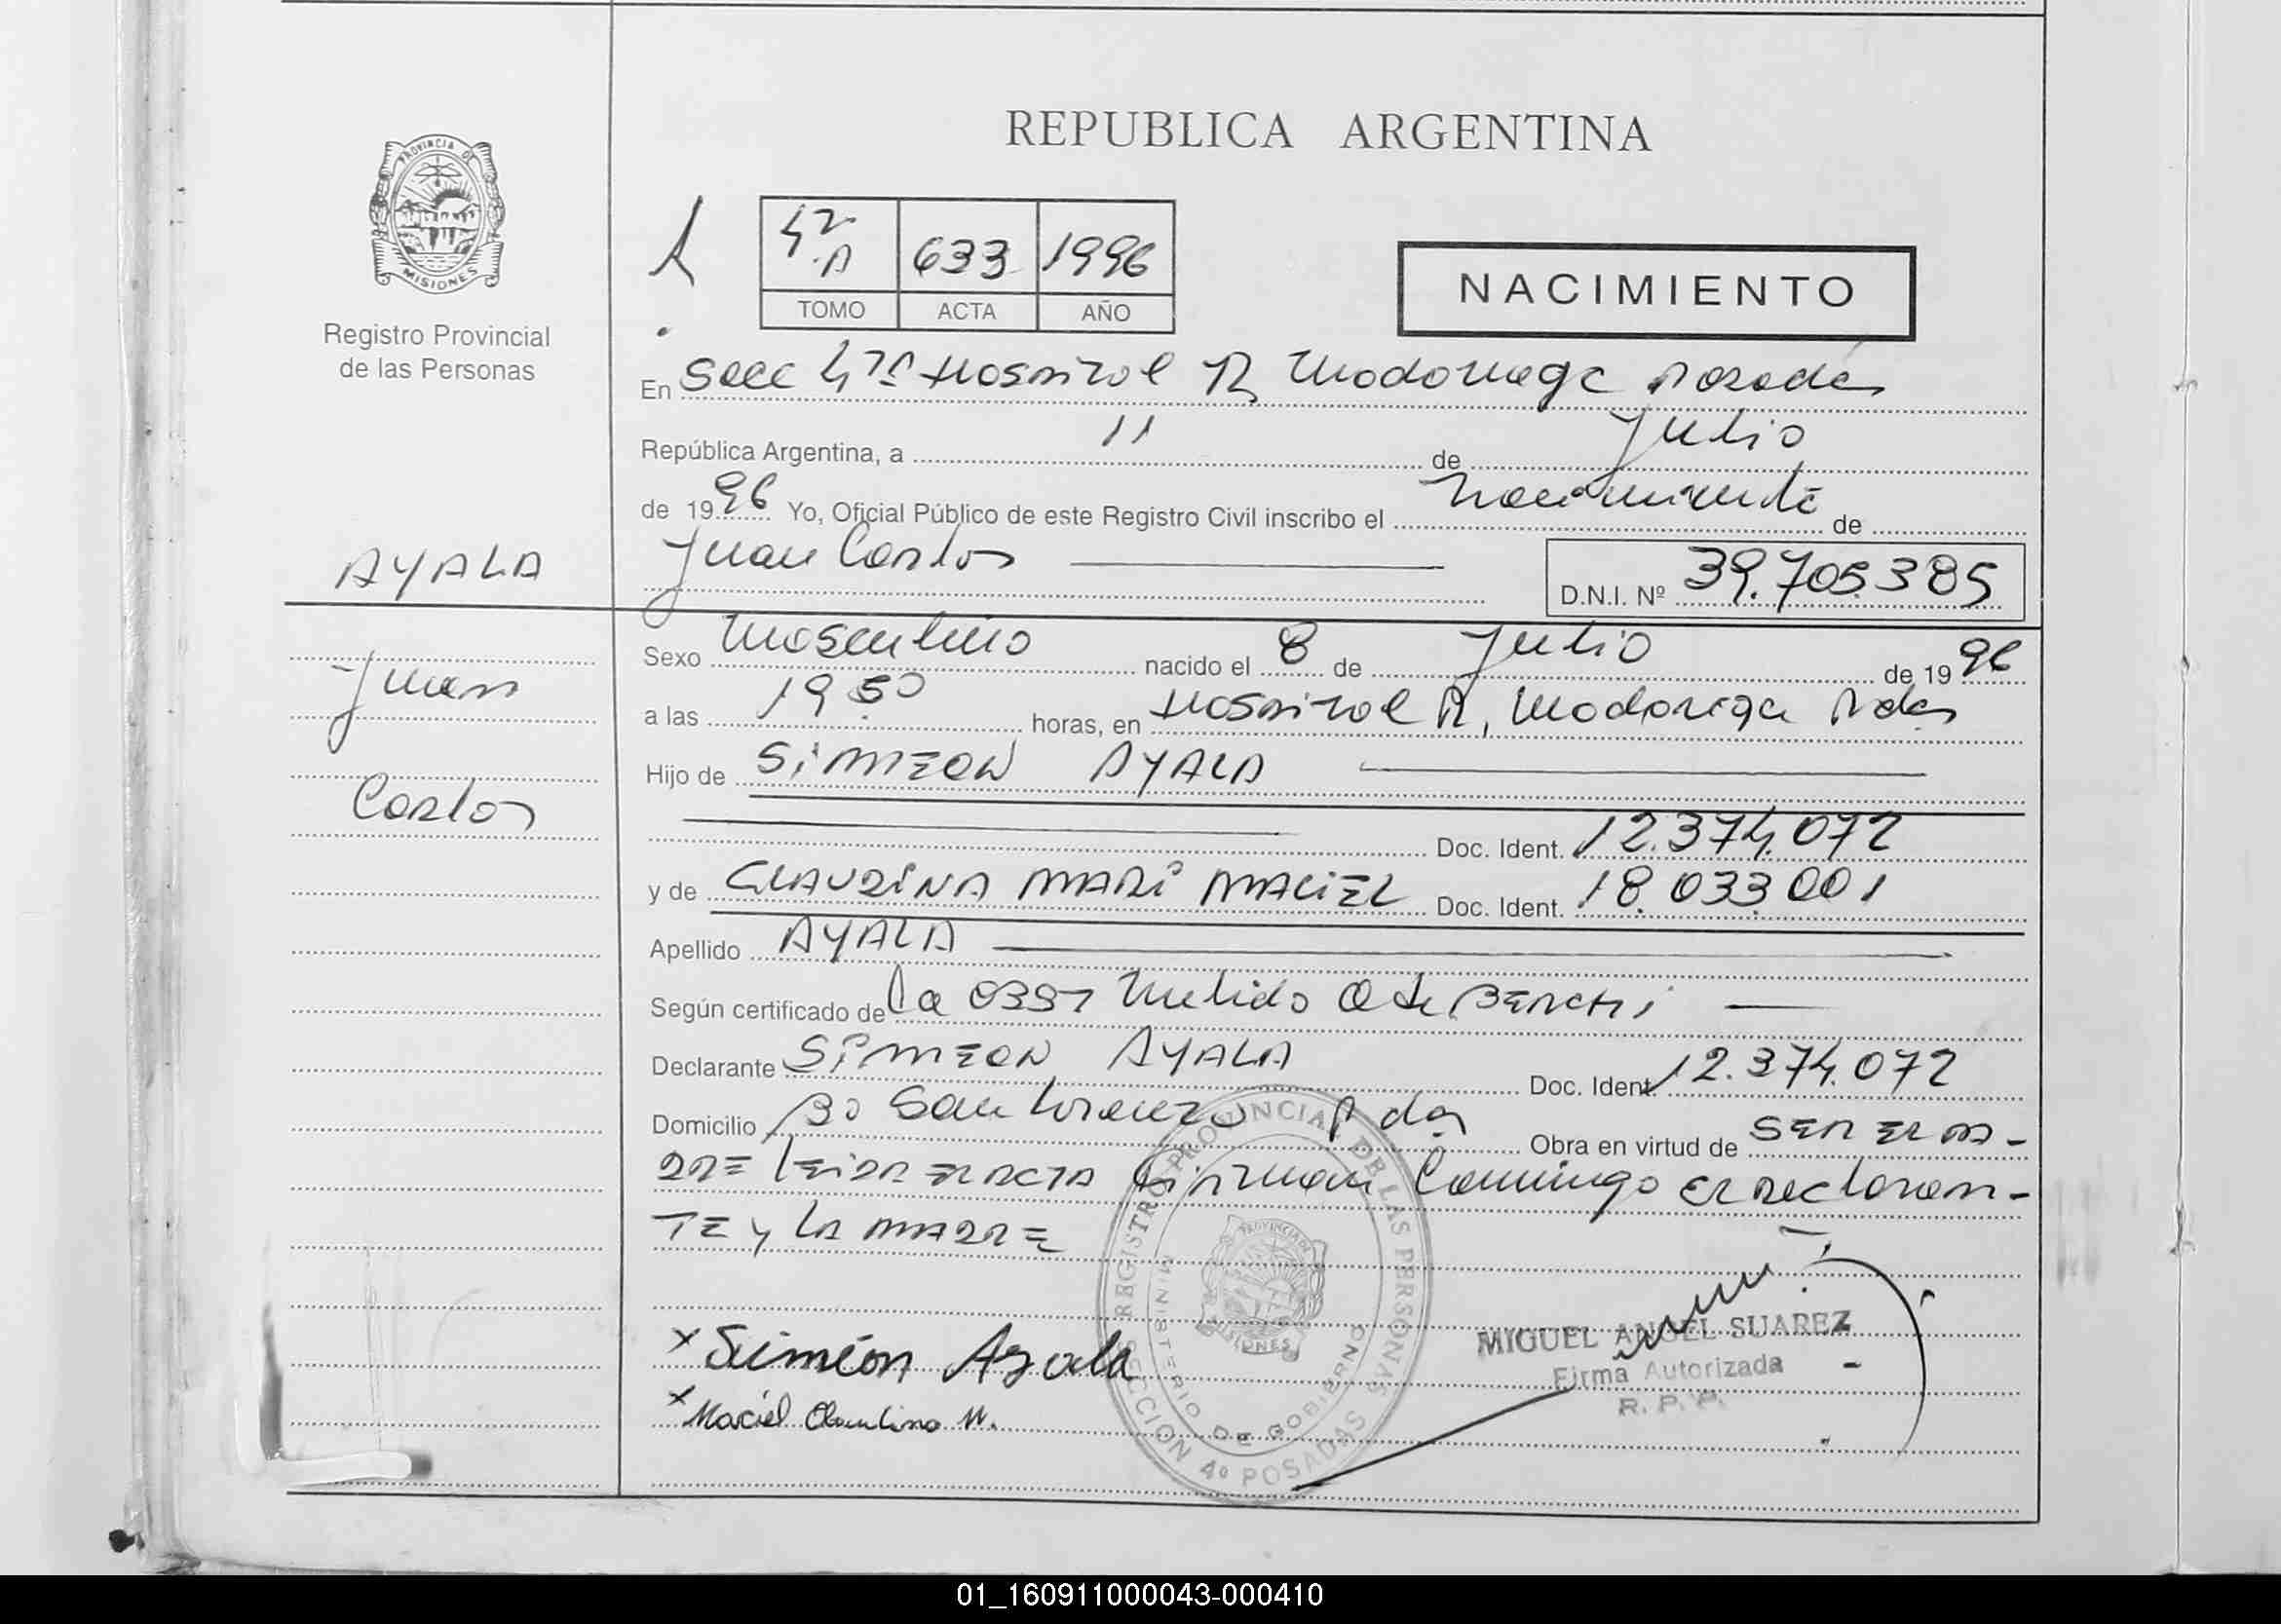 REPUBLICA ARGENTINA
PROVINCIA DE
MISIONES
Registro Provincial
de las Personas
633 1996
TOMO ACTA AÑO
NACIMIENTO
En Secc 4ta Hospital R Madariaga Posadas
República Argentina, a 11 de Julio
de 1996 Yo, Oficial Público de este Registro Civil inscribo el Nacimiento de
Juan Carlos
D.N.I. Nº 39.705.385
AYALA
Juan
Carlos
Sexo Masculino nacido el 8 de Julio de 1996
a las 19 50 horas, en Hospital R. Madariaga Pdas
Hijo de SiMEON AYALA
Doc. Ident. 12.374.072
y de CLAUDINA MARi MACiEL Doc. Ident. 18.033.001
Apellido AYALA
Según certificado de la OBST
Declarante SiMEON AYALA Doc. Ident. 12.374.072
Domicilio Bo San Lorenzo Pdas Obra en virtud de SER EL PA-
DRE LEiDA EL ACTA Firman Conmigo EL Declaran-
TE y LA MADRE
x Simeón Ayala
x Maciel Claudina M.
REGISTRO PROVINCIAL DE LAS PERSONAS
MINISTERIO DE GOBIERNO
PROVINCIA DE
MISIONES
SECCION 4º POSADAS
MIGUEL ANGEL SUAREZ
Firma Autorizada
R. P. P.
01_160911000043-000410